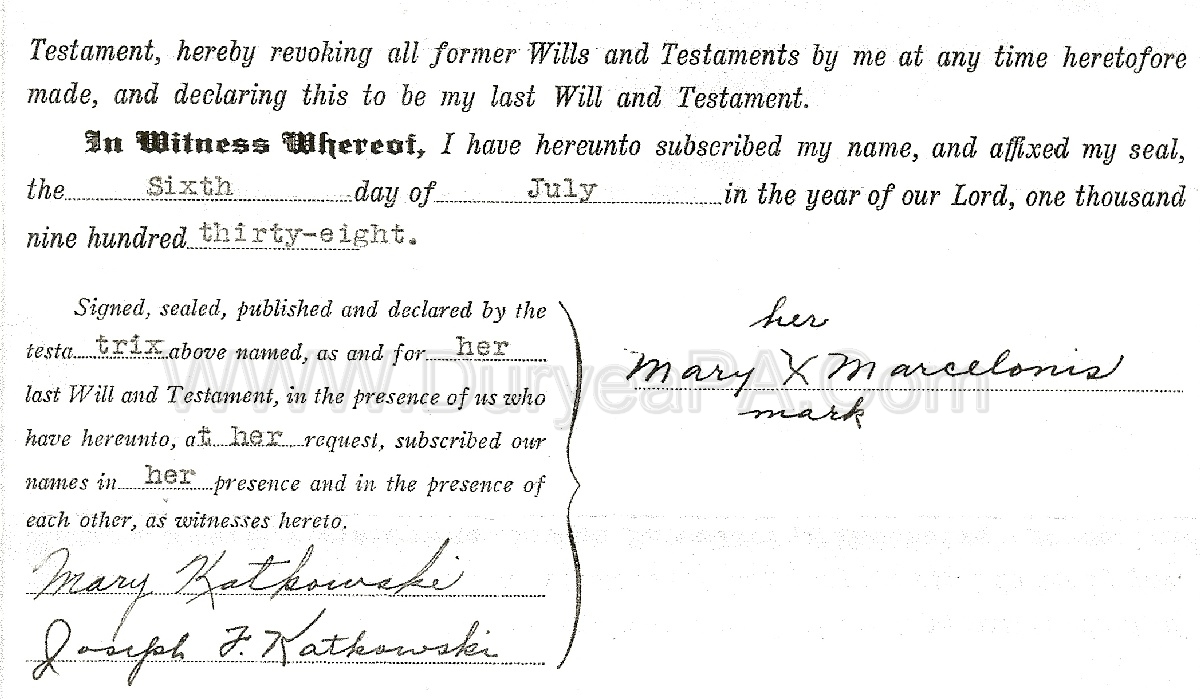 Testament, hereby revoking all former Wills and Testaments by me at any time heretofore
made, and declaring this to be my last Will and Testament.
In Witness Whereof, I have hereunto subscribed my name, and affixed my seal,
the Sixth day of July in the year of our Lord, one thousand
nine hundred thirty-eight.
Signed, sealed, published and declared by the
testa trix above named, as and for her
last Will and Testament, in the presence of us who
have hereunto, at her request, subscribed our
names in her presence and in the presence of
each other, as witnesses hereto.
Mary Katkowski
Joseph F. Katkowski
her
Mary X Marcelonis
mark
www.DuryeaPA.Com